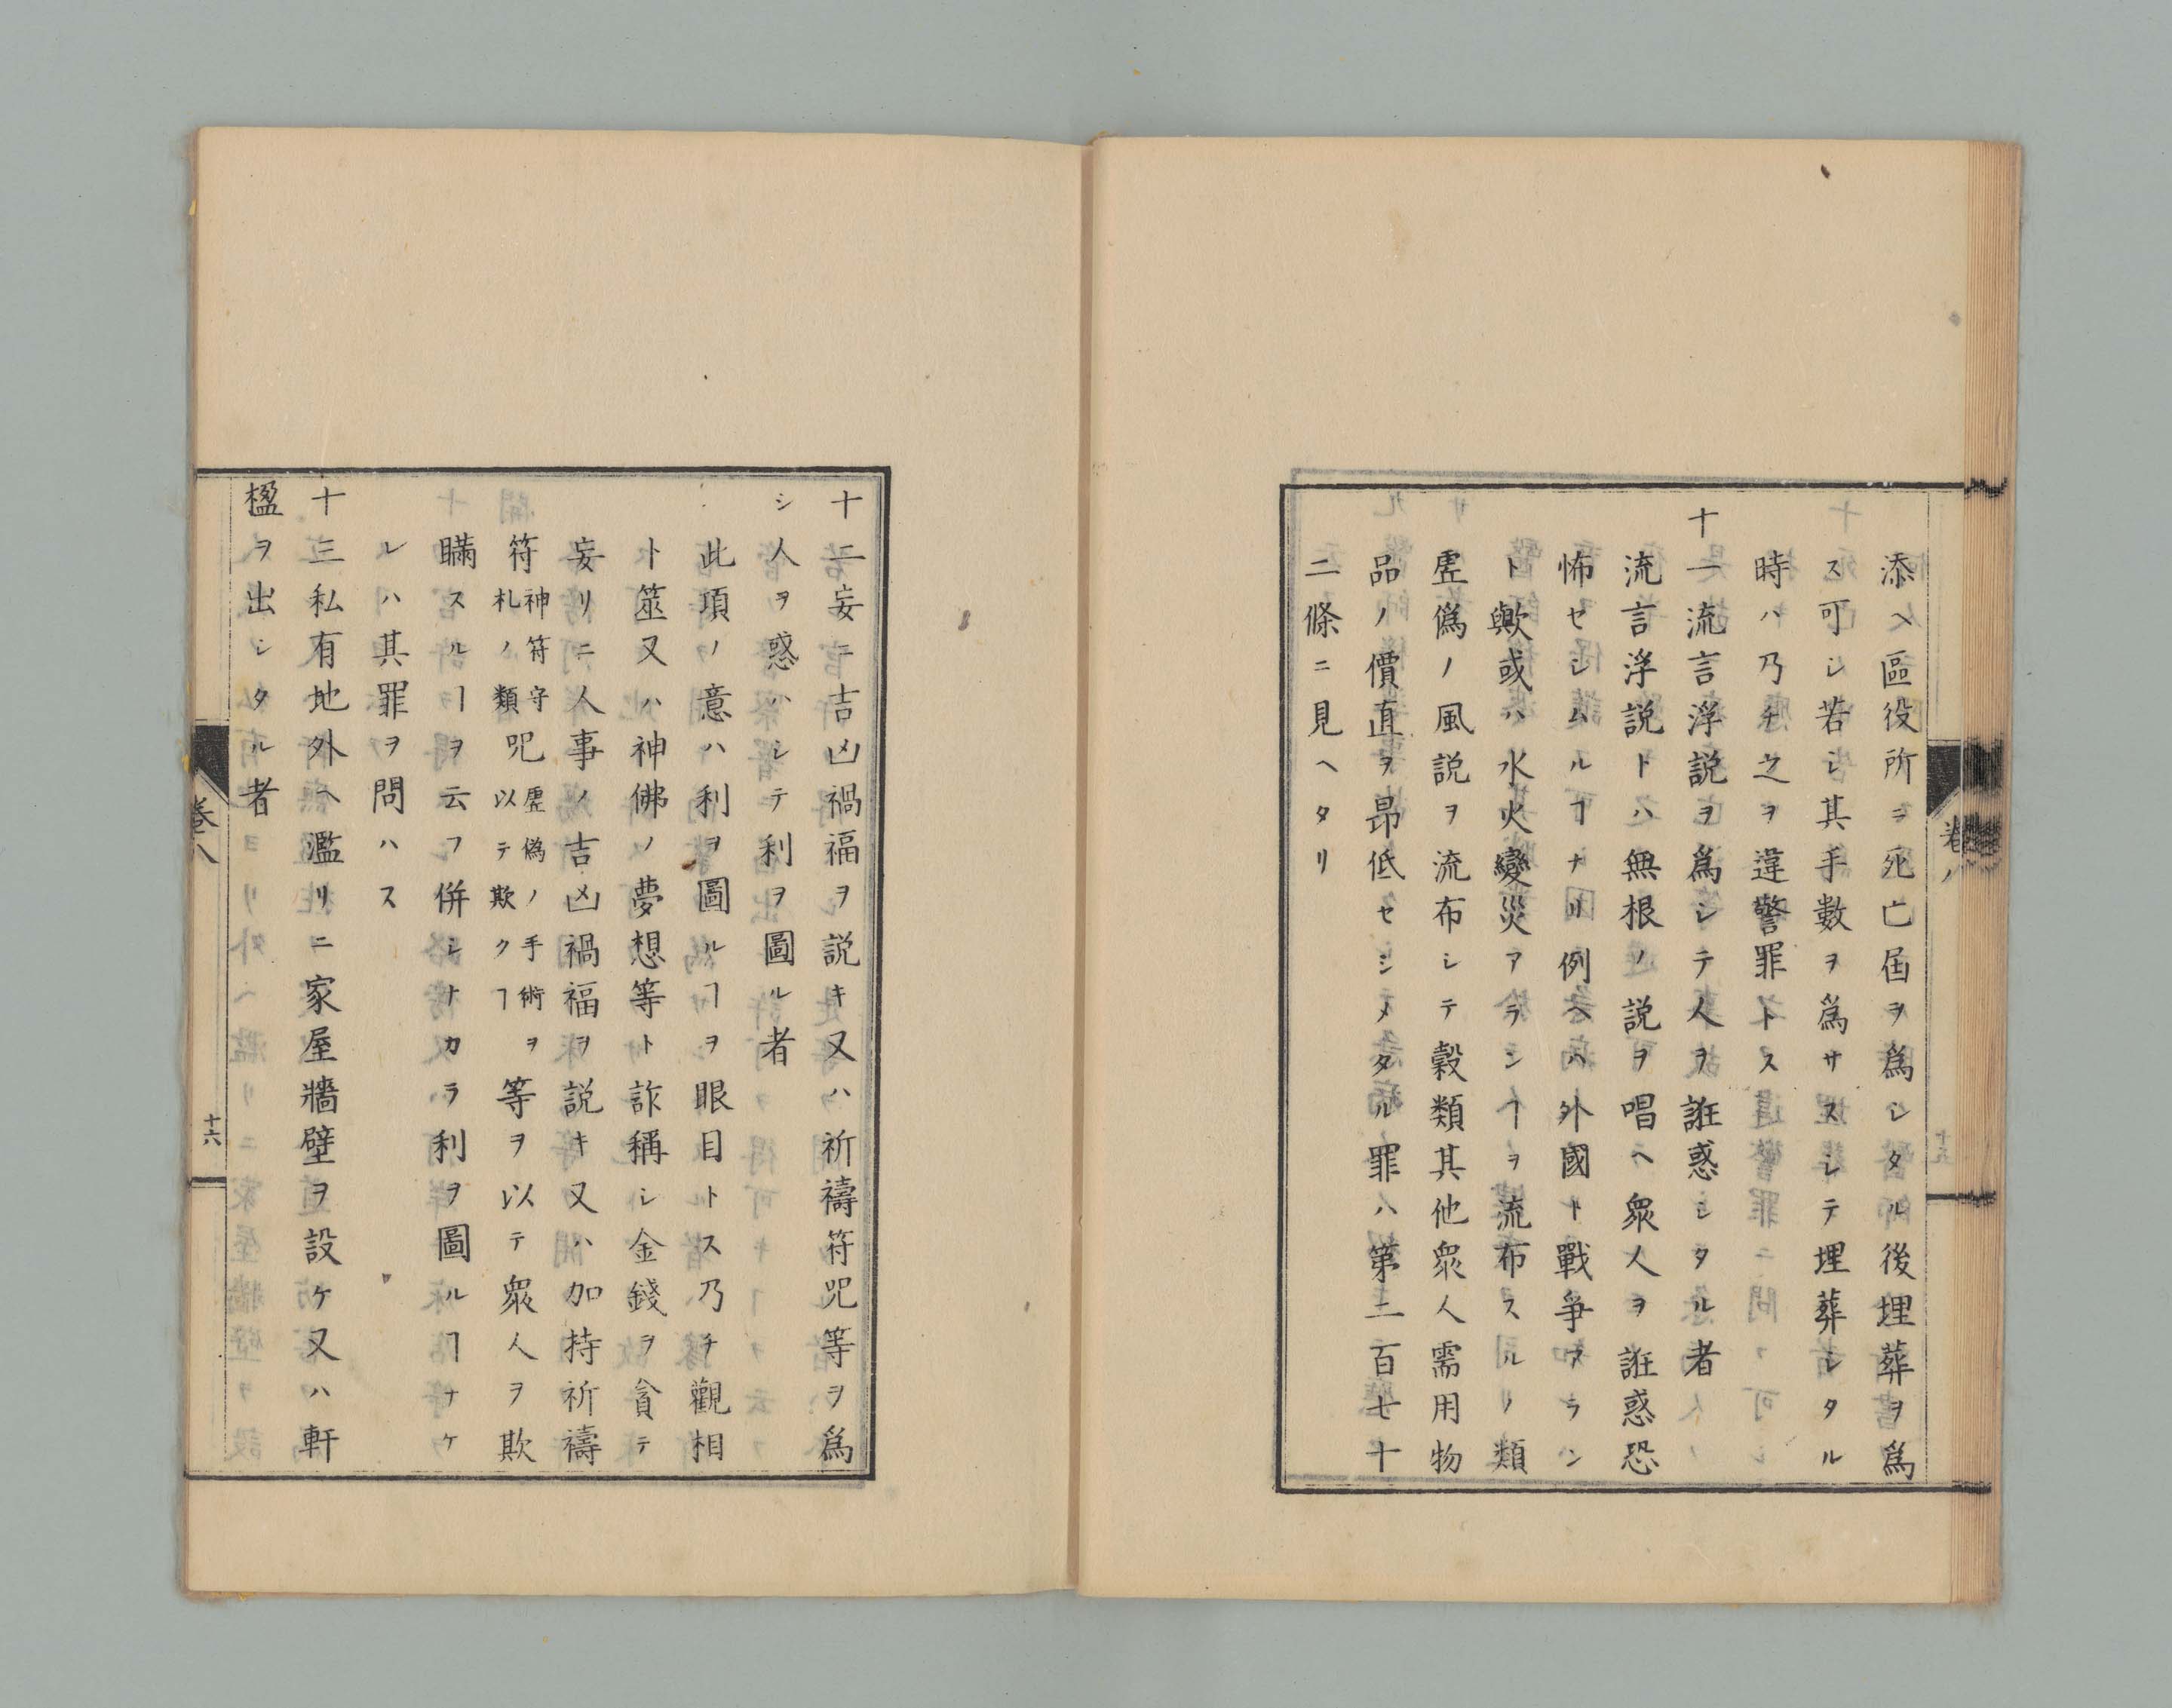 添ヘ區役所ヲ死亡届ヲ爲シタル後埋葬ヲ爲
ス可シ若シ其手數ヲ爲サスシテ埋葬シタル
時ハ乃チ之ヲ違警罪トス
十一流言浮説ヲ爲シテ人ヲ誑惑シタル者
流言浮説トハ無根ノ説ヲ唱ヘ衆人ヲ誑惑恐
怖セシムルヿナリ例ヘハ外國ト戰爭アラン
ト歟或ハ水火變災アラントヲ流布スルノ類
虚僞ノ風説ヲ流布シテ穀類其他衆人需用物
品ノ價直ヲ昂低セシメタル罪ハ第二百七十
二條ニ見ヘタリ
十二妄ニ吉凶禍福ヲ説キ又ハ祈禱符咒等ヲ爲
シ人ヲ惑ハシテ利ヲ圖ル者
此項ノ意ハ利ヲ圖ルヿヲ眼目トス乃チ觀相
卜筮又ハ神佛ノ夢想等ト詐稱シ金錢ヲ貪テ
妄リニ人事ノ吉凶禍福ヲ説キ又ハ加持祈禱
符神符守札ノ類咒虚僞ノ手術ヲ以テ欺クヿ等ヲ以テ衆人ヲ欺
瞞スルヿヲ云フ併シナカラ利ヲ圖ルヿナケ
レハ其罪ヲ問ハス
十三私有地外ヘ濫リニ家屋牆壁ヲ設ケ又ハ軒
楹ヲ出シタル者
卷八
十六